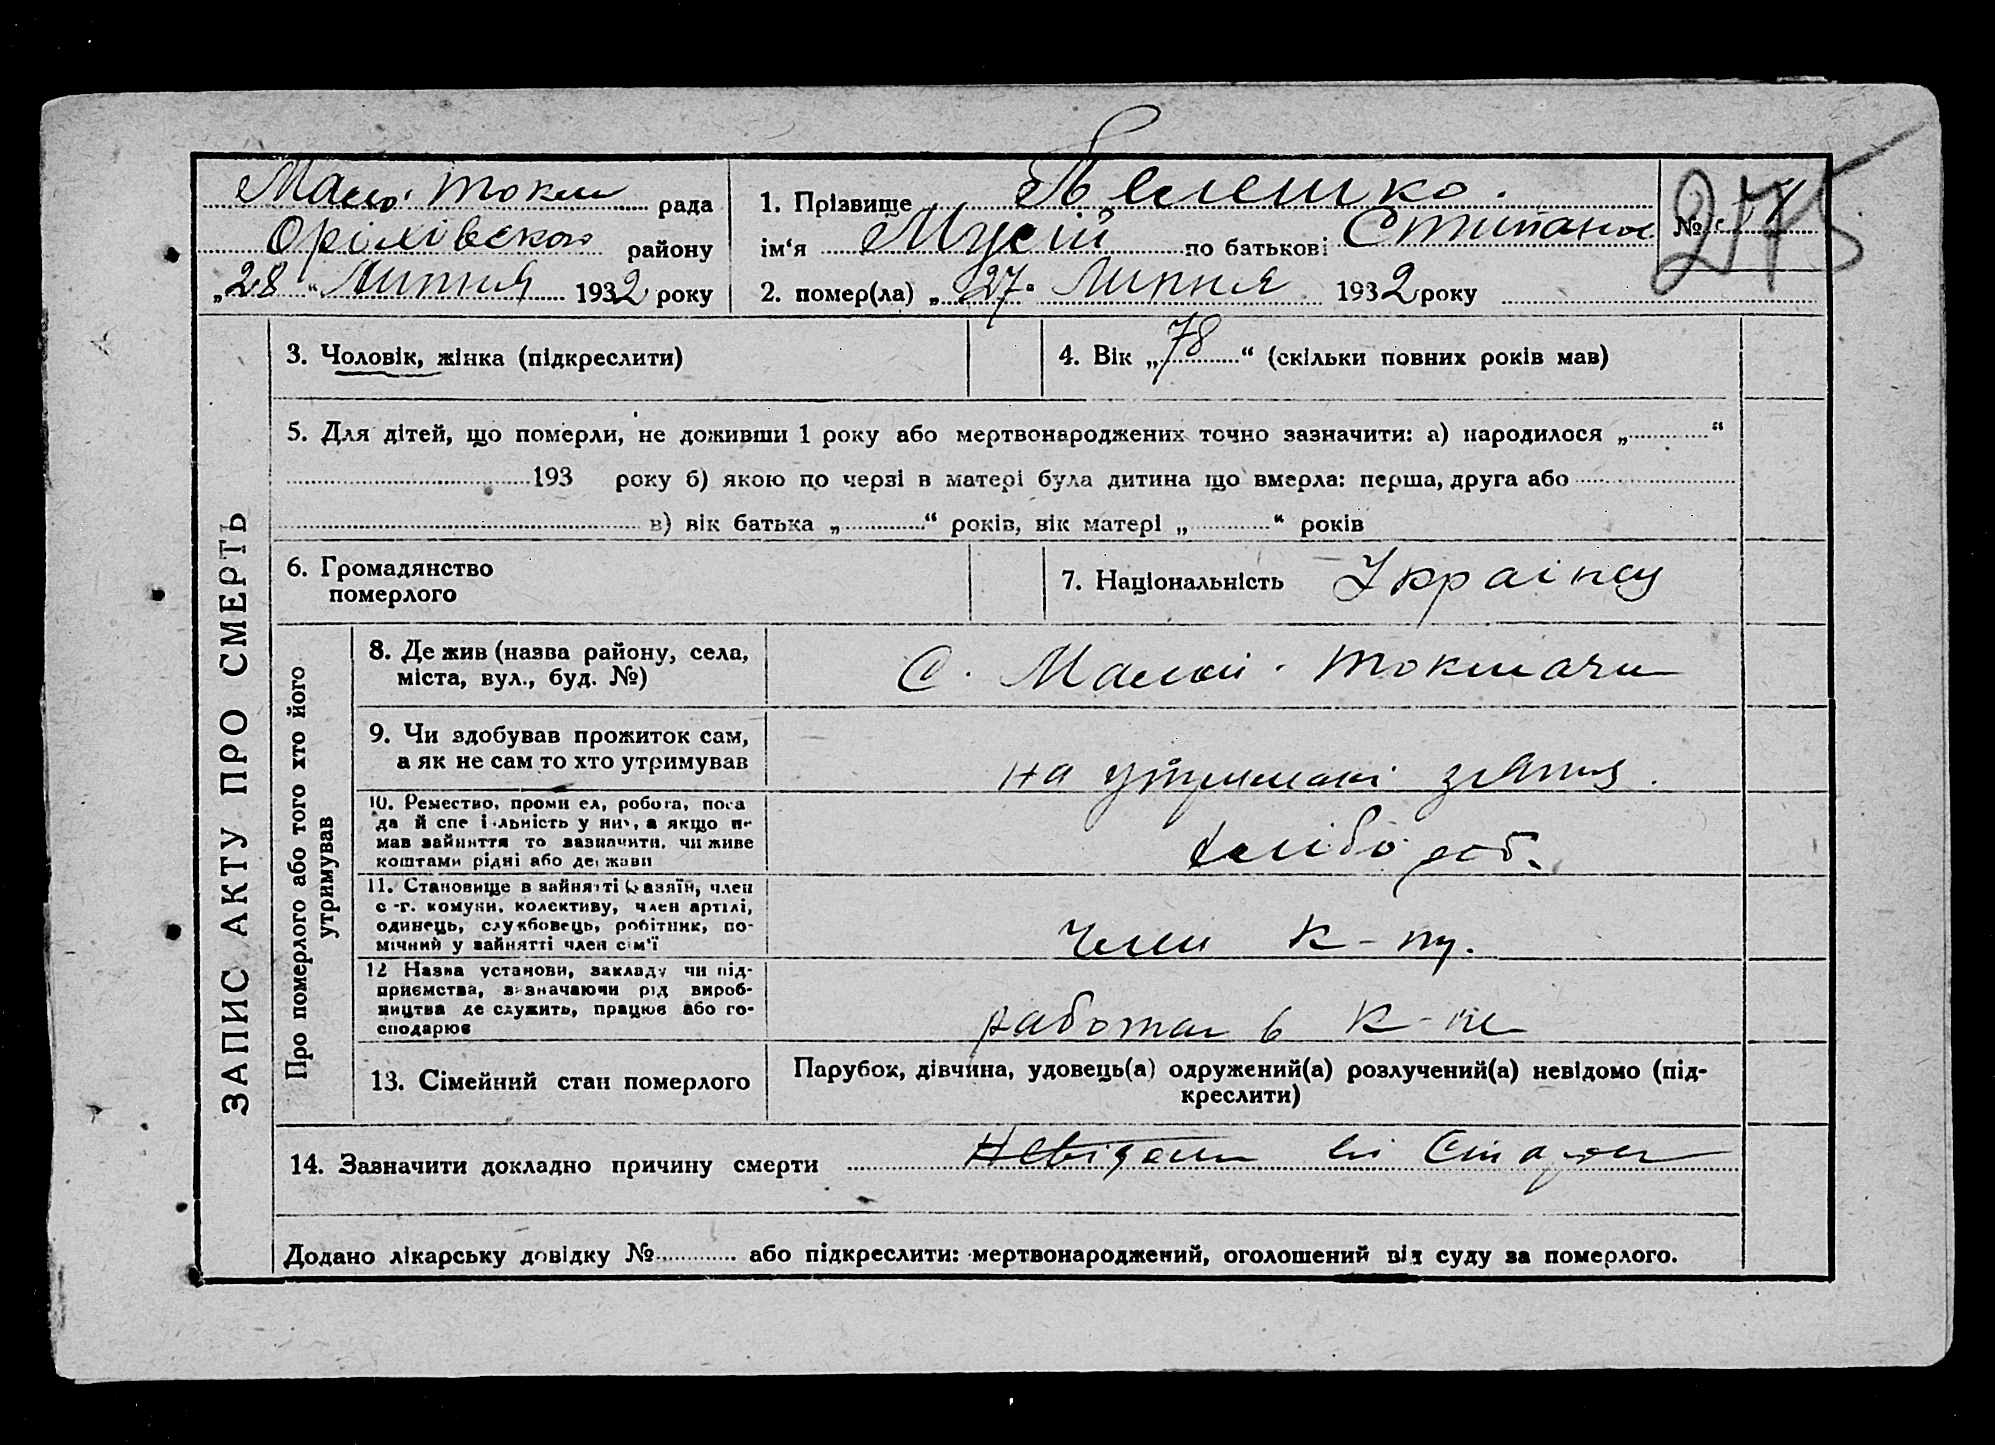 Мало. Токм рада
Оріхівского району
„28“ Липня 1932 року
1. Прізвище Велешко.
ім‘я Мусій по батькові Степанов
2. помер(ла) „27“ Липня 1932 року
№
275
ЗАПИС АКТУ ПРО СМЕРТЬ
3. Чоловік, жінка (підкреслити)
4. Вік „78“ (скільки повних років мав)
5. Для дітей, що померли, не доживши 1 року або мертвонароджених точно зазначити: а) народилося „ “
193 року б) якою по черзі в матері була дитина що вмерла: перша, друга або
в) вік батька „ “ років, вік матері „ “ років
6. Громадянство
померлого
7. Національність Украінец
Про померлого або того хто його
утримував
8. Де жив (назва району, села,
міста, вул., буд. №)
С. Малой. Токмачи
9. Чи здобував прожиток сам,
а як не сам то хто утримував
на утримані зятя.
10. Ремество, проми ел, робота, поса
да й спе і льність у ни , а якщо не
мав зайняття то зазначити, чи живе
коштами рідні або держави
хлібороб.
11. Становище в зайнятті хазяїн, член
с -г. комуни, колективу, член артілі,
одинець, службовець, робітник, по-
мічний у зайнятті член сім'ї
член к-гу.
12 Назва установи, закладу чи під-
приємства, зазначаючи рід вироб-
ництва де служить, працює або го-
сподарює
работал в к-пе
13. Сімейний стан померлого
Парубок, дівчина, удовець(а) одружений(а) розлучений(а) невідомо (під-
креслити)
14. Зазначити докладно причину смерти Невідомо
Додано лікарську довідку № або підкреслити: мертвонароджений, оголошений від суду за померлого.